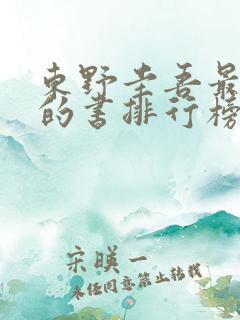 東野圭吾最
的书排行榜
宋暎一
未经同意禁止转载